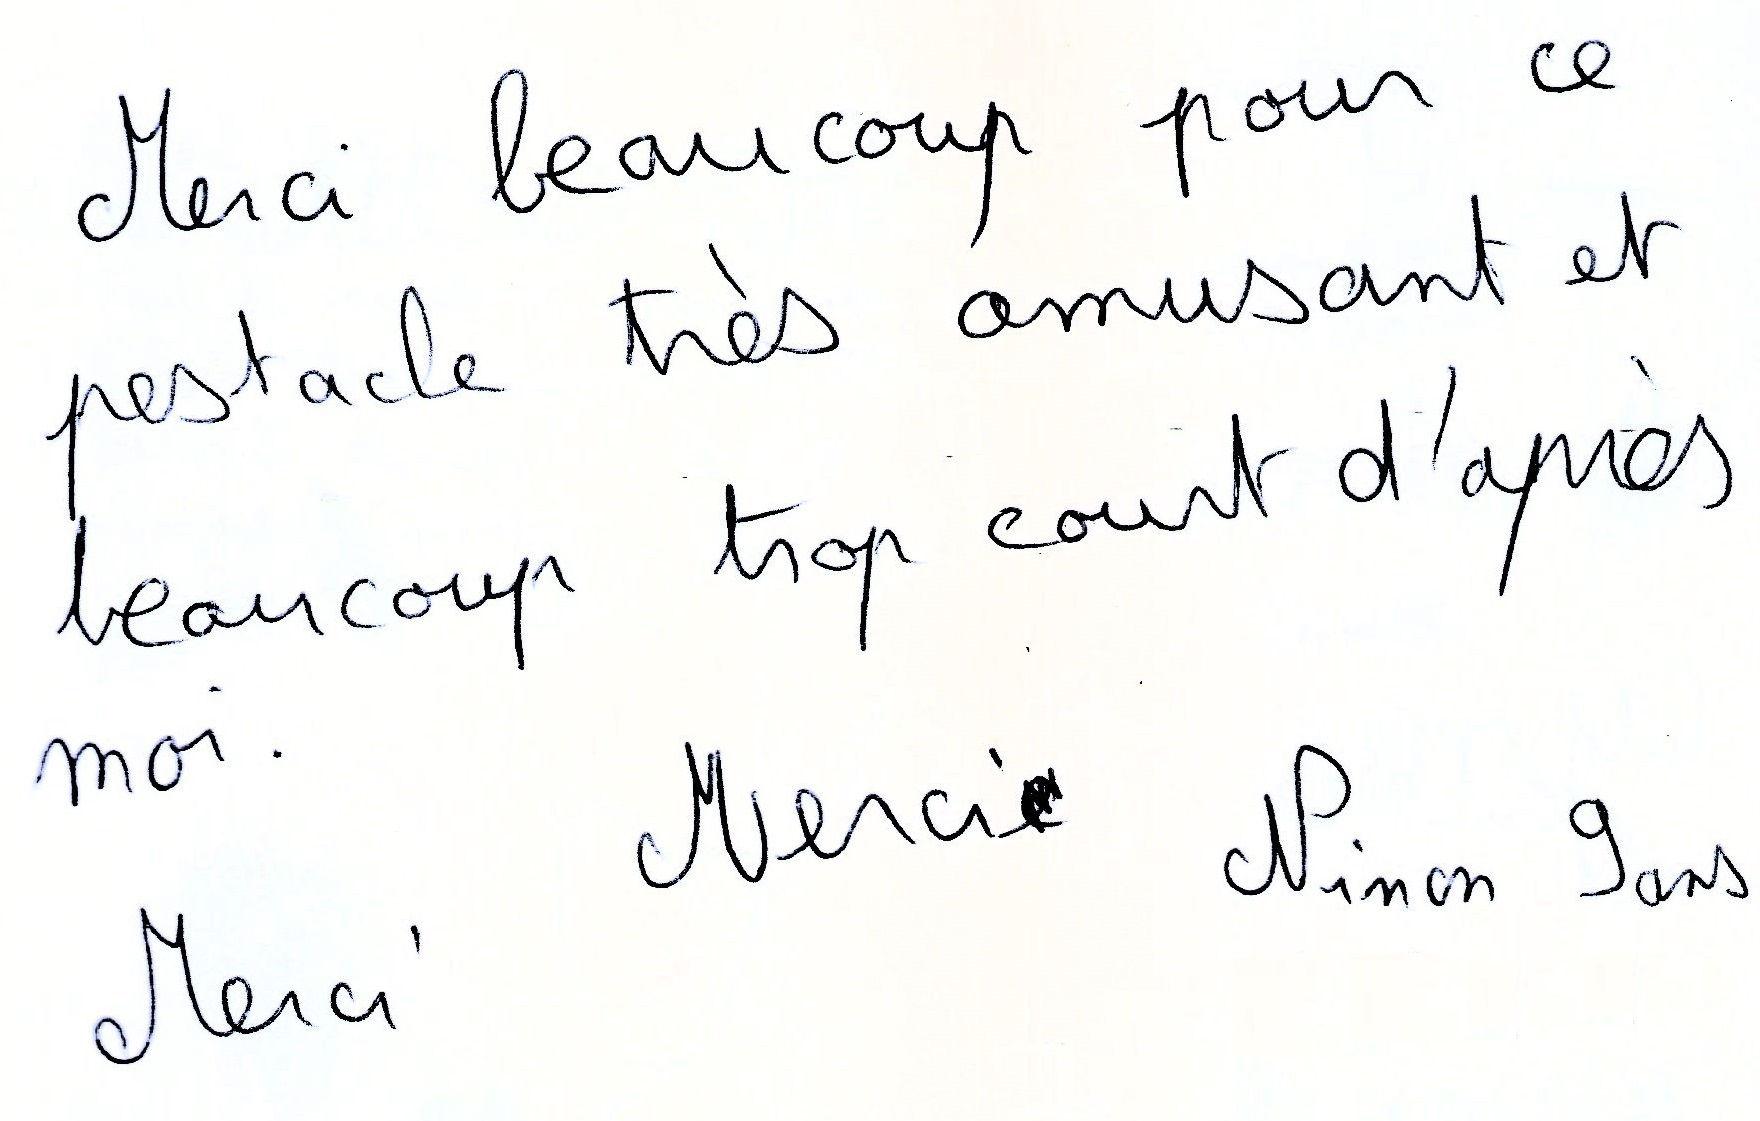 Merci beaucoup pour ce
pestacle très amusant et
beaucoup trop court d'après
moi.
Merci Ninon 9ans
Merci